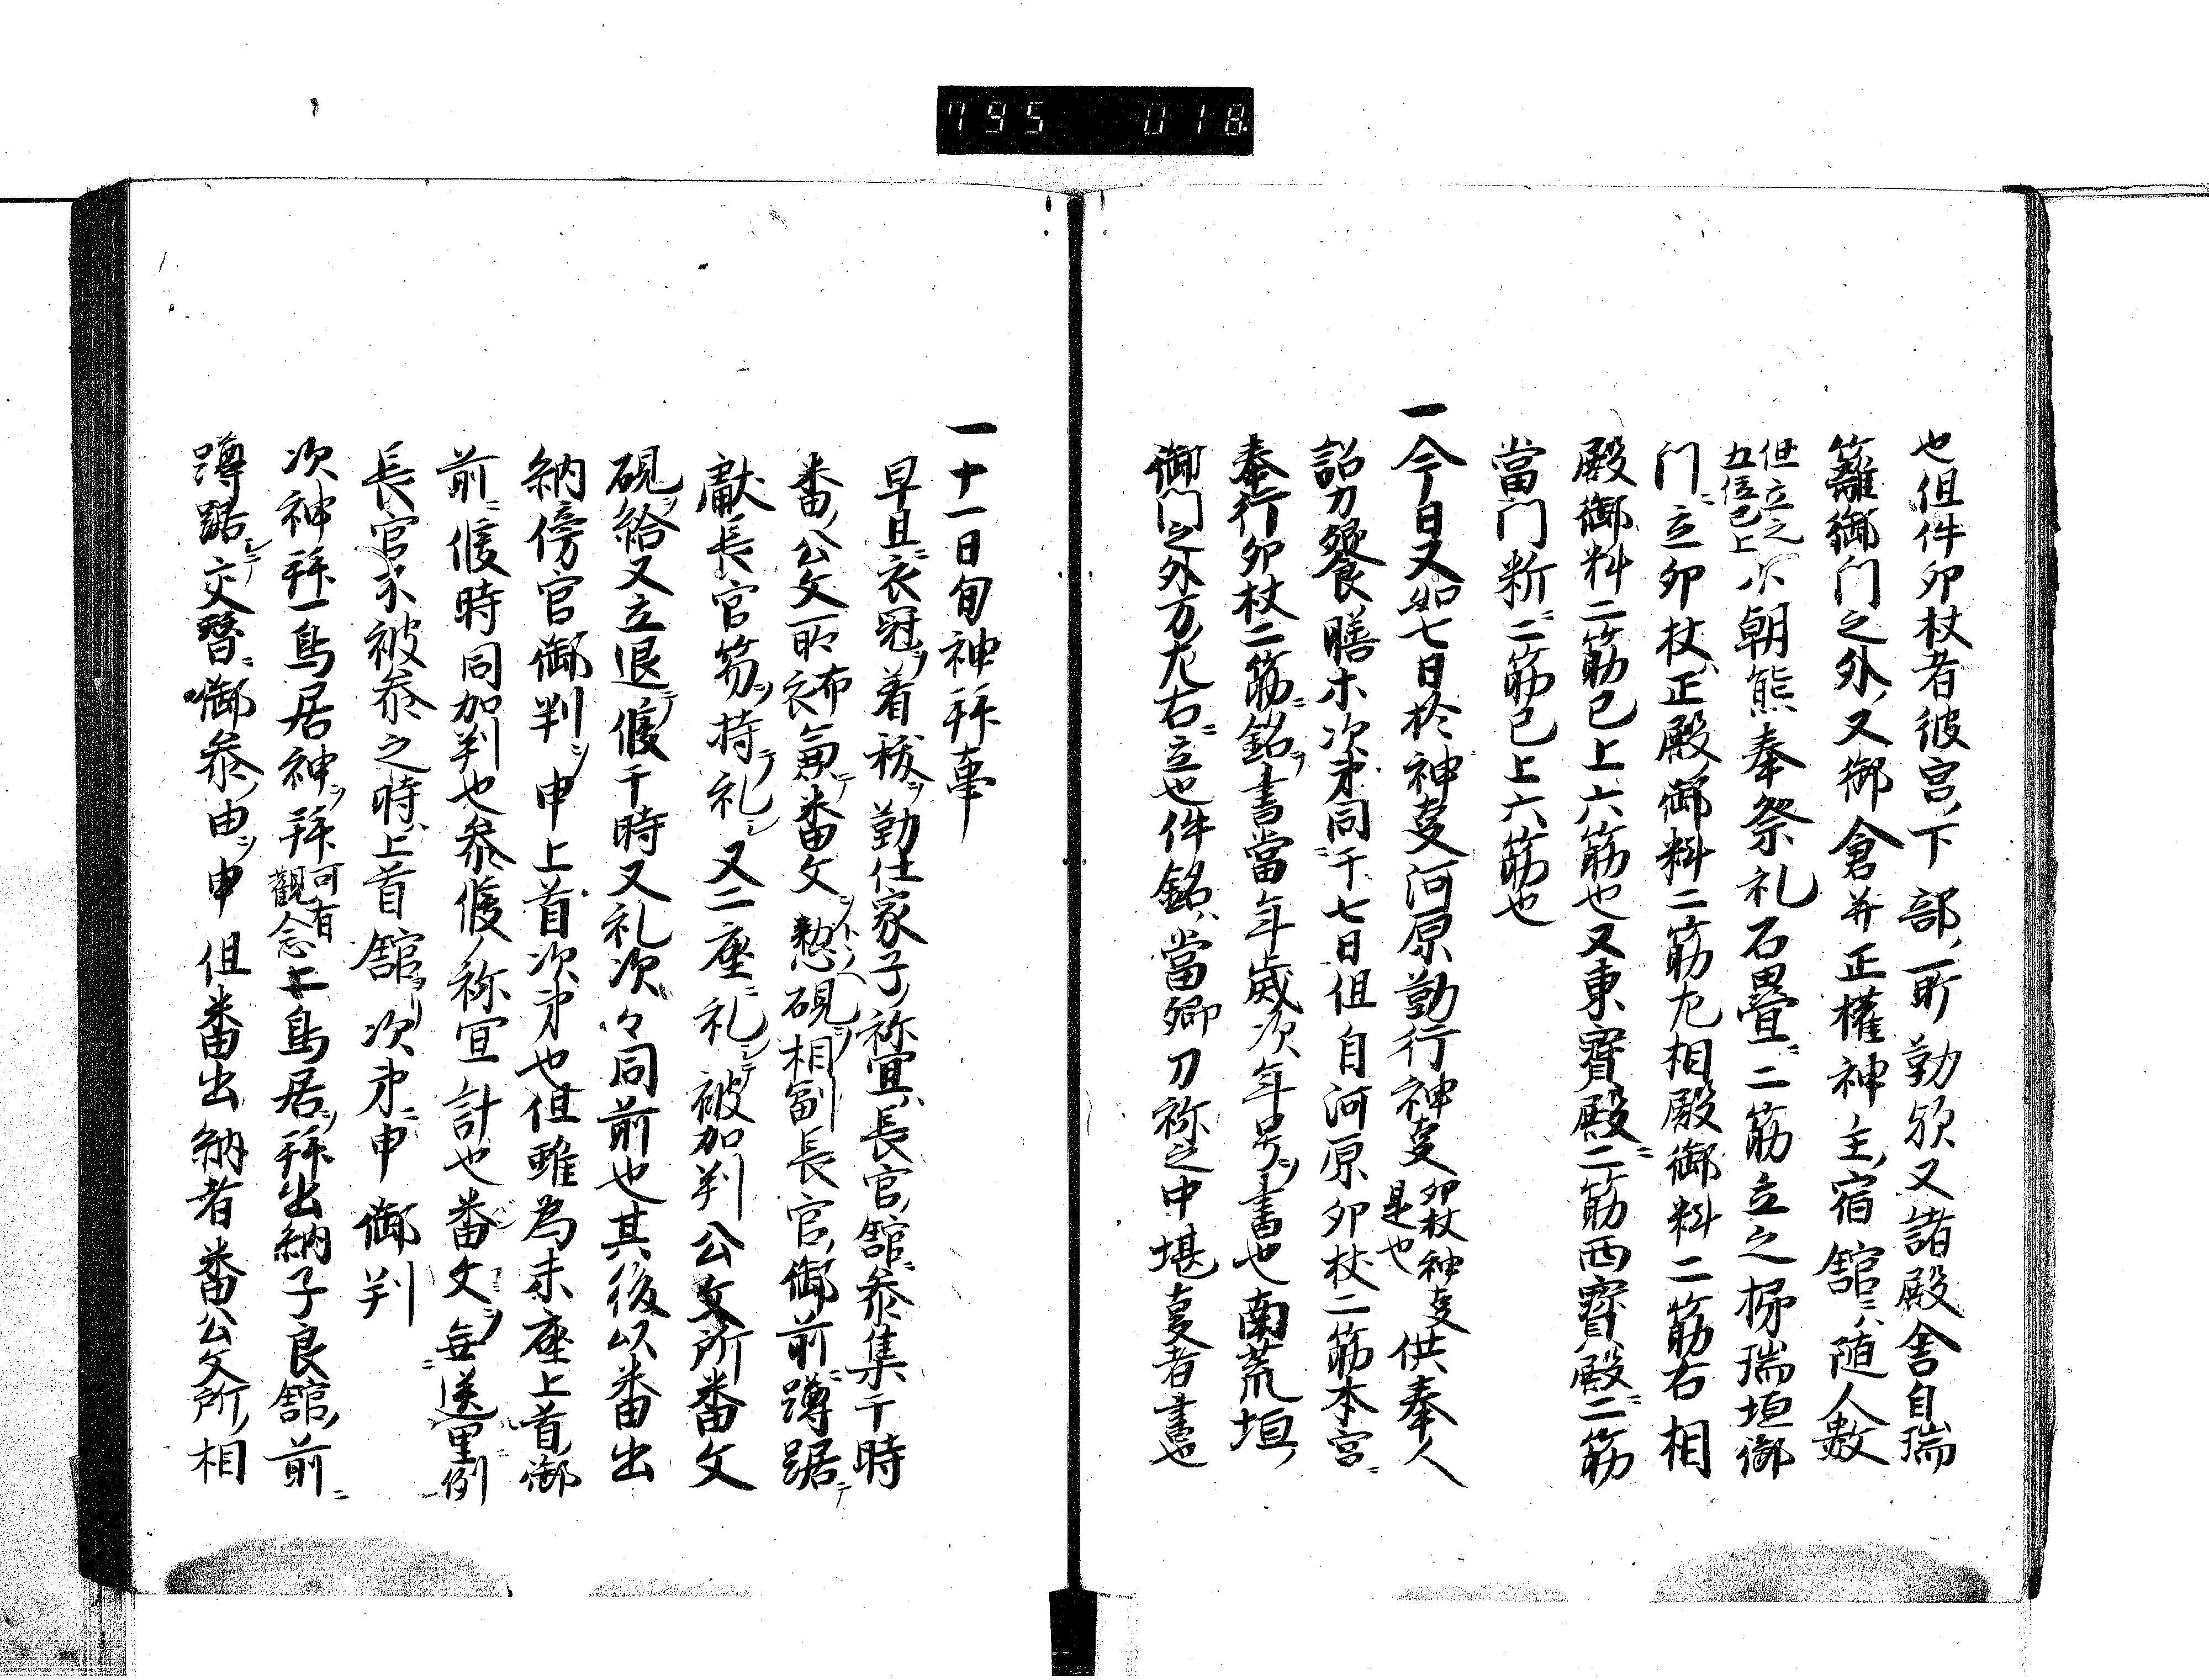 795 018
也但件卯杖者彼宮ノ下部ノ所勤欤又諸殿舎自瑞
籬御門之外ノ又御倉并正權神主ノ宿舘ニハ随人數
但立之
五位已上次朝熊奉祭礼石畳ニ二筋立之梯瑞垣御
门ニ立卯杖ハ正殿ノ御料二筋左相殿御料二筋右相
殿御料二筋已上六筋也又東寳殿ニ二筋西寳殿ニ二筋
當門新ニ二筋已上六筋也
一今日又如七日於神㕝河原勤行神㕝卯杖神㕝
是也供奉人
詔刀饗膳木次第同于七日但自河原卯杖二筋本宮ニ
奉行卯杖二筋ニ銘ヲ書當年歳次年号ヲ書也南荒垣ノ
御門之外方ノ左右ニ立也件銘ハ當郷刀祢之中堪㕝者書也
一十一日旬神拜事
早旦ニ衣冠ヲ着祓ヲ勤仕家子ノ祢宜ハ長官ノ舘ニ参集于時
番ノ公文所布
衣魚テ番文ヲ懃硯ヲ相副長官ノ御前ニ蹲踞テ
獻長官笏ヲ持テ礼シ又二座ニ礼シテ被加判公文所番文
硯ヲ給又立退テ候于時又礼次々同前也其後以番出
納傍官御判ヲ申上首次第也但雖為末座上首ノ御
前ニ候時同加判也参候ノ祢宜計也番文ヲ無ニ送里例
長官不被参之時ハ上首舘ヨリ次第ニ申御判
次神拜一鳥居神ヲ拜可有
觀念二鳥居ヲ拜出納子良舘ノ前ニ
蹲踞シテ交替ニ御参ノ由ヲ申但番出納者番公文所ノ相